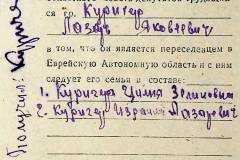 ся гр. Куригер
Лазарь Яковлевич
в том, что он является переселенцем в
Еврейскую Автономную область и с ним
следует его семья в составе:
1. Куригер Циля Зеликовна
2. Куригер Израиль Лазаревич
Получил: Куриге